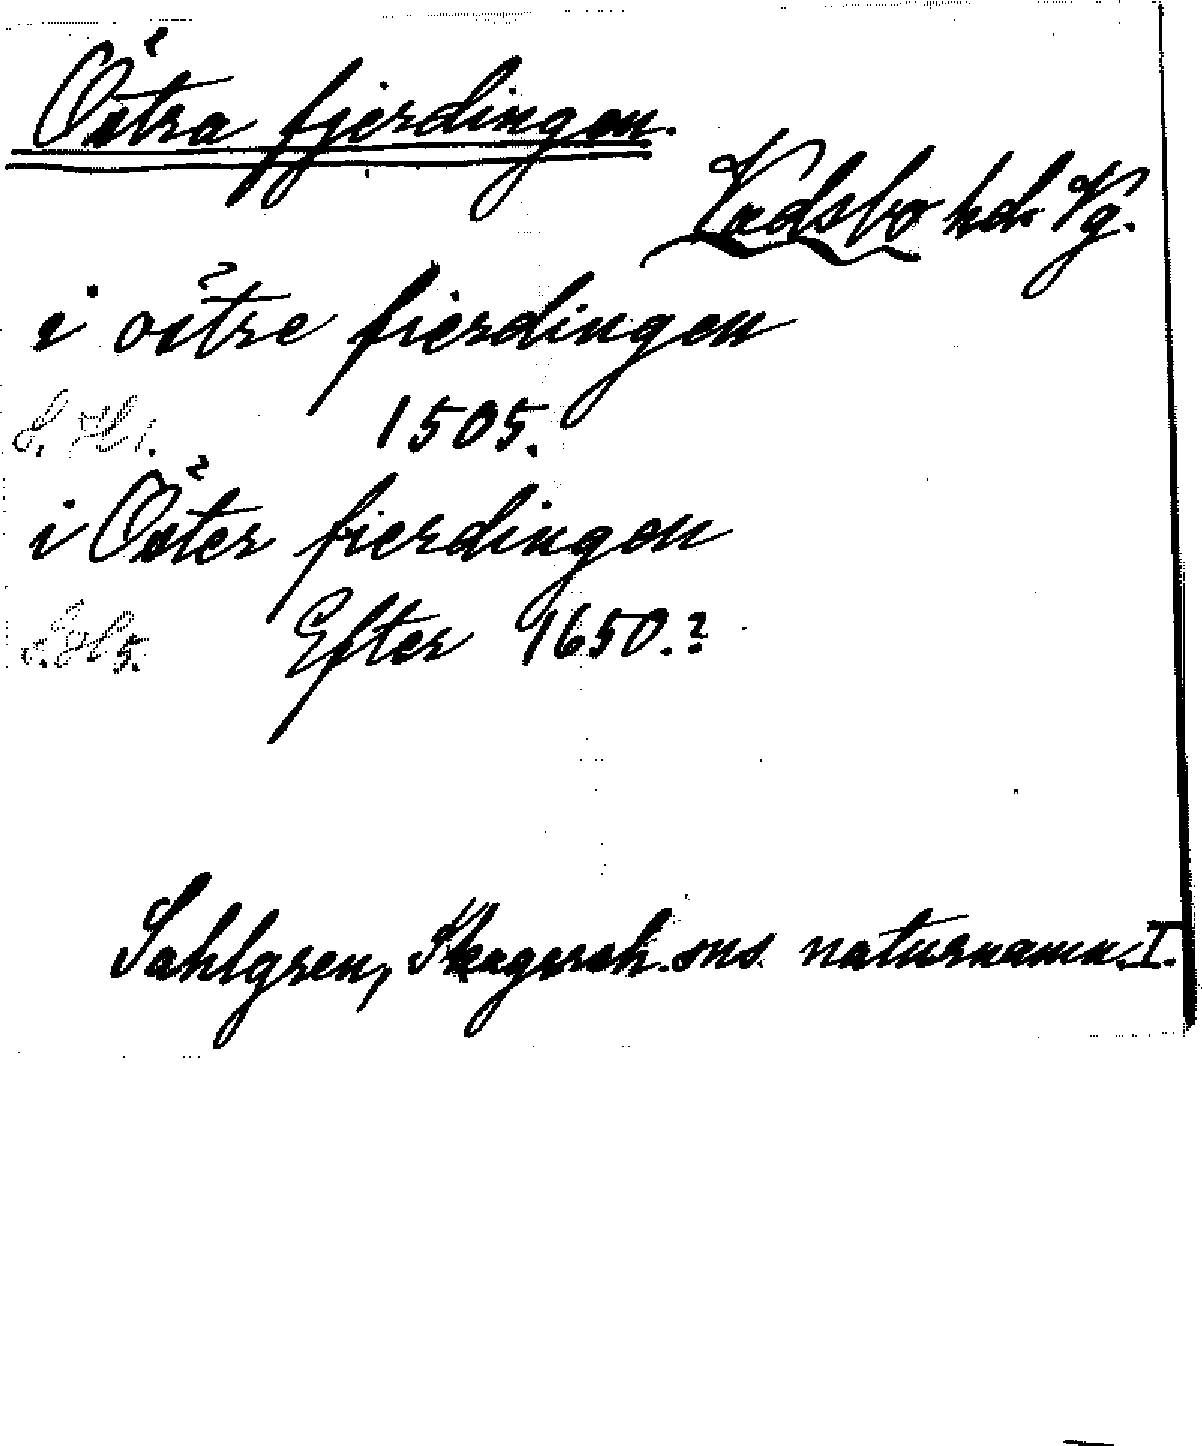 Östra fjerdingen.
Vadsbo hd. Vg.
i östre fierdingen
1505.
i Öster fierdingen
Efter 1650.?
Sahlgren, Skagersh. sns naturnamn. I.